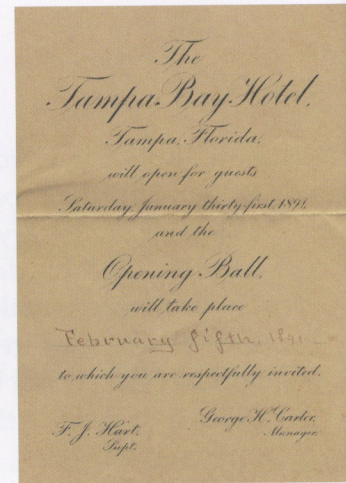 The
Tampa Bay Hotel,
Tampa, Florida,
will open for guests
Saturday, January thirty-first, 1891,
and the
Opening Ball,
will take place
February fifth, 1891
to which you are respectfully invited.
F. J. Hart, George H. Carter,
Supt. Manager.